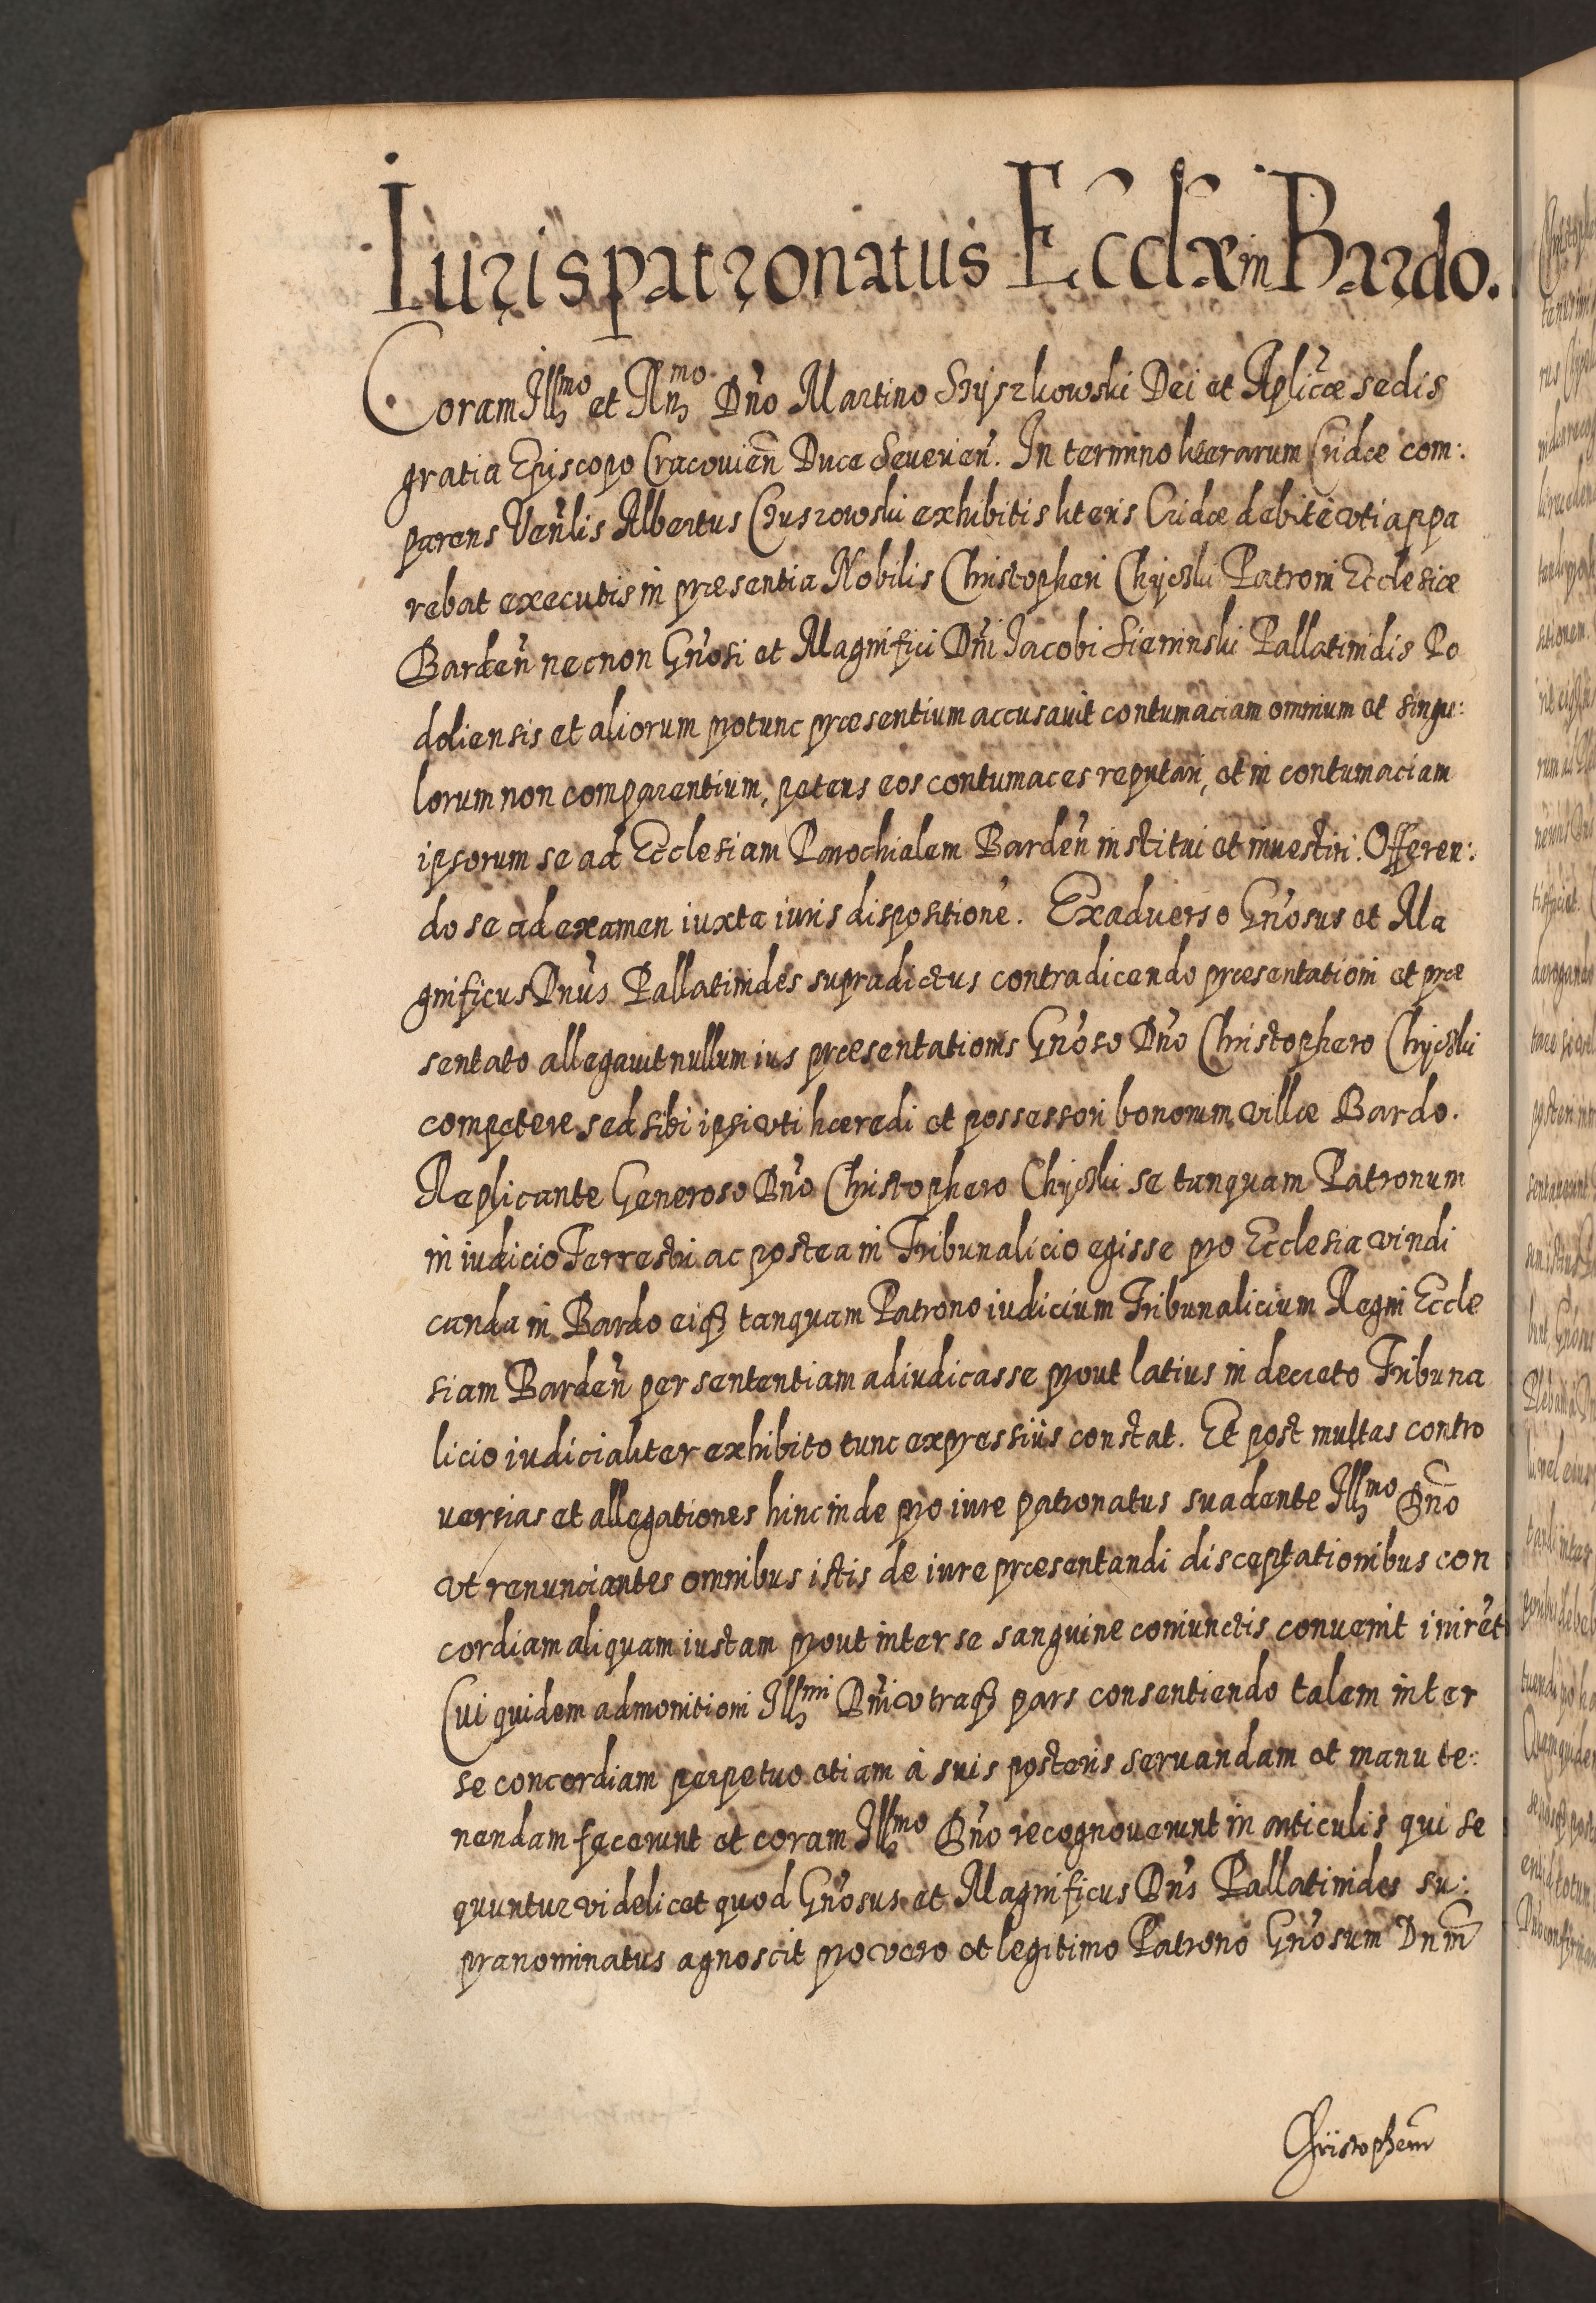 Iurispatronatus Eccłæ in Bardo.
Coram Illmo et Rmo Dño Martino Szyszkowski Dei et Aplicæ sedis
gratia Episcopo Cracouieñ Duce Seuerieñ. In termino literarum Cridæ com:
parens Veñlis Albertus Chuszowski exhibitis literis Cridæ debite vti appa
rebat executis in præsentia Nobilis Christopheri Chyczki Patroni Ecclesiæ
Bardeñ necnon Gñosi et Magnifici Dñi Iacobi Sieninski Pallatinidis Po
doliensis et aliorum protunc præsentium accusauit contumaciam omnium et singu:
lorum non comparentium, petens eos contumaces reputari, et in contumaciam
ipsorum se ad Ecclesiam Parochialem Bardeñ institui et inuestiri. Offeren:
do se ad examen iuxta iuris dispositione. Exaduerso Gñosus et Ma
gnificus Dnus Pallatinides supradictus contradicendo præsentationi et præ
sentato allegauit nullum ius præsentationis Gñoso Dño Christophero Chyczki
competere sed sibi ipsi vti hæredi et possessori bonorum villæ Bardo.
Replicante Generoso Dño Christophero Chyczki se tanquam Patronum
in iudicio Terrestri ac postea in Tribunalicio egisse pro Ecclesia vindi
canda in Bardo eiqȝ tanquam Patrono iudicium Tribunalicium Regni Eccle
siam Bardeñ per sententiam adiudicasse prout latius in decreto Tribuna
licio iudicialiter exhibito tunc expressius constat. Et post multas contro
uersias et allegationes hinc inde pro iure patronatus suadente Illmo Dño
vt renunciantes omnibus istis de iure præsentandi disceptationibus con
cordiam aliquam iustam prout inter se sanguine coniunctis conuenit iniret
Cui quidem admonitioni Illmi Dñi vtraqȝ pars consentiendo talem inter
se concordiam perpetuo etiam à suis posteris seruandam et manu te:
nendam fecerunt et coram Illmo Dño recognouerunt in articulis qui se
quuntur videlicet quod Gñosus et Magnificus Dñs Pallatinides su:
pranominatus agnoscit pro vero et legitimo Patrono Gñosum Dnm
Christopherum